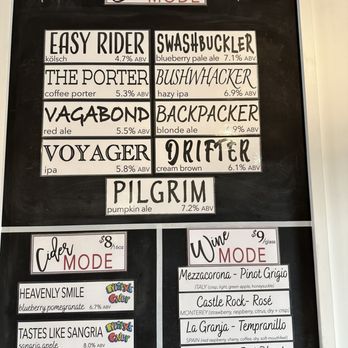 MODE
EASY RIDER
kölsch 4.7% ABV
SWASHBUCKLER
blueberry pale ale 7.1% ABV
THE PORTER
coffee porter 5.3% ABV
BUSHWHACKER
hazy ipa 6.9% ABV
VAGABOND
red ale 5.5% ABV
BACKPACKER
blonde ale .9% ABV
VOYAGER
ipa 5.8% ABV
DRIFTER
cream brown 6.1% ABV
PILGRIM
pumpkin ale 7.2% ABV
Cider $8/16oz
MODE
HEAVENLY SMILE
blueberry pomegranate 6.7% ABV
TASTES LIKE SANGRIA
sangria apple 8.0% ABV
Wine $9/glass
MODE
Mezzacorona - Pinot Grigio
ITALY (crisp, light, green apple, honeysuckle)
Castle Rock- Rosé
MONTEREY (strawberry, raspberry, citrus, dry + crisp)
La Granja - Tempranillo
SPAIN (red raspberry, cherry, coffee, silky, soft mouthfeel)